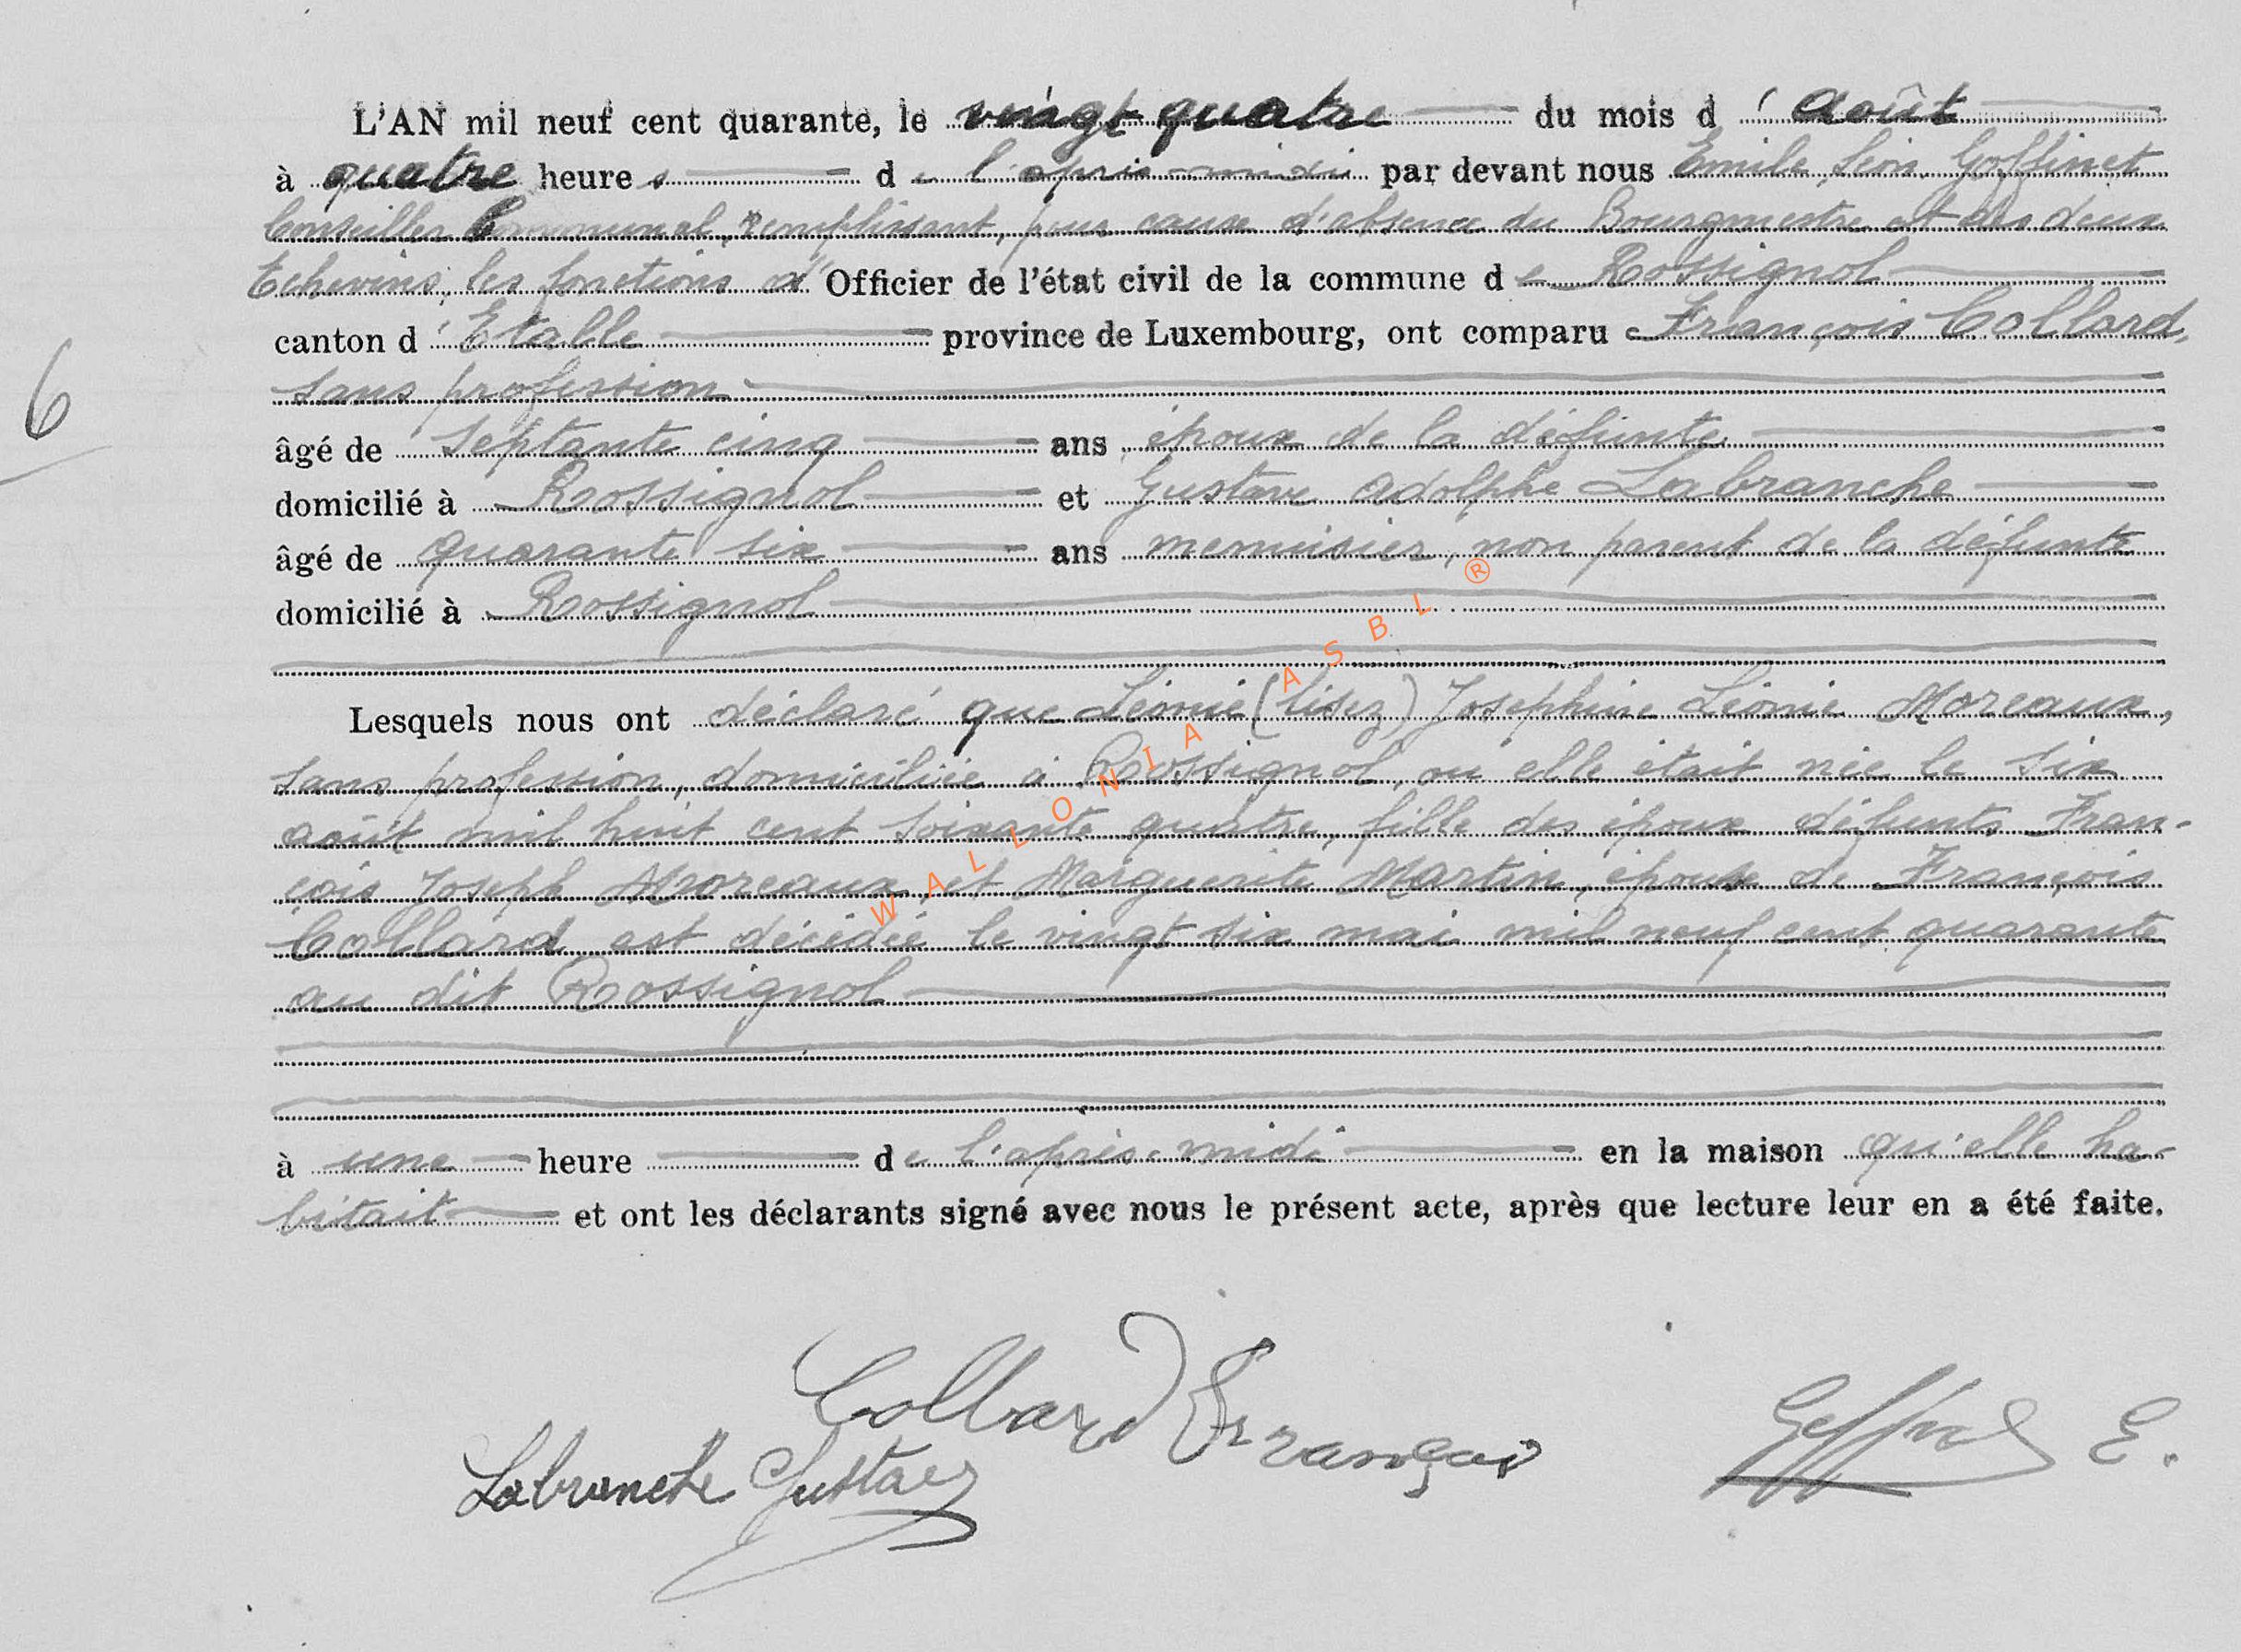 L'AN mil neuf cent quarante, le vingt quatre du mois d'août
à quatre heures de l'après-midi par devant nous Emile, Léon, Goffinet
Conseiller Communal, remplissant, pour cause d'absence du Bourgmestre et des deux
Echevins, les fonctions d'Officier de l'état civil de la commune de Rossignol
canton d'Etalle province de Luxembourg, ont comparu François Collard,
sans profession
âgé de septante cinq ans époux de la défunte
domicilié à Rossignol et Gustave Adolphe Labranche
âgé de quarante six ans menuisier, non parent de la défunte
domicilié à Rossignol
6
Lesquels nous ont déclaré que Léonie (lisez) Joséphine Léonie Moreaux,
sans profession, domiciliée à Rossignol, où elle était née le six
août mil huit cent soixante quatre, fille des époux défunts Fran-
çois Joseph Moreaux et Marguerite Martin, épouse de François
Collard est décédée le vingt six mai mil neuf cent quarante
au dit Rossignol
à une heure de l'après-midi en la maison qu'elle ha-
bitait et ont les déclarants signé avec nous le présent acte, après que lecture leur en a été faite.
Collard François
Labranche Gustave
Goffinet E.
WALLONIA ASBL ®